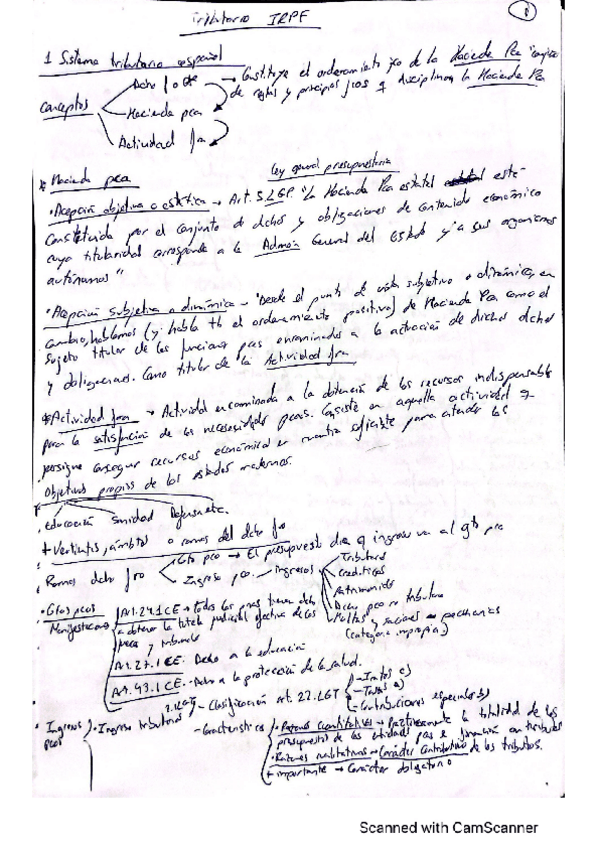 Tributario IRPF
1
1 Sistema tributario español
Conceptos
Dcho fro → Constituye el ordenamiento jco de la Hacienda Pca "conjunto
de reglas y principios jcos q disciplinan la Hacienda Pca
Hacienda pca
Actividad fra
* Hacienda pca
Ley general presupuestaria
• Acepción objetiva o estática → Art. 5 LGP. "La Hacienda Pca estatal esté
constituida por el conjunto de dchos y obligaciones de contenido económico
cuya titularidad corresponde a la Admón General del Estado y a sus organismos
autónomos"
• Acepción subjetiva o dinámica - "Desde el punto de vista subjetivo o dinámico, en
cambio, hablamos (y habla tb el ordenamiento positivo) de Hacienda Pca como el
sujeto titular de las funciones pcas encaminadas a la actuación de dichos dchos
y obligaciones. Como titular de la Actividad fra
* Actividad fra → Actividad encaminada a la obtención de los recursos indispensables
para la satisfacción de las necesidades pcas. Consiste en aquella actividad q
persigue conseguir recursos económicos en cuantía suficiente para atender los
objetivos propios de los estados modernos.
educación sanidad Defensa etc.
+ Vertientes, ámbitos o ramas del dcho fro
Ramas dcho fro
Gto pco → El presupuesto dice q ingreso va al gto pco
Ingreso pco - ingresos
Tributarios
Crediticios
Patrimoniales
Dcho pco no tributario
Multas y sanciones pecuniarias
(categoría impropia)
• Gtos pcos
Manifestaciones
Art. 24.1 CE → todas las pnas tienen dcho
a obtener la tutela judicial efectiva de los
jueces y tribunales
Art. 27.1 CE. Dcho a la educación
Art. 43.1 CE. - Dcho a la protección de la salud.
• Ingresos
pcos
• Ingresos tributarios
2.2 LGT
- Clasificación art. 2.2 LGT
- Imptos c)
- Tasas a)
- Contribuciones especiales b)
- Características
• Razones cuantitativas → Prácticamente la totalidad de los
presupuestos de las entidades pcas se financian con tributos
• Razones cualitativas → Carácter contributivo de los tributos.
+ importante → Carácter obligatorio
Scanned with CamScanner